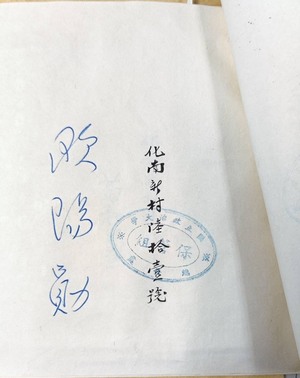 化南新村陸拾壹號
歐陽勛